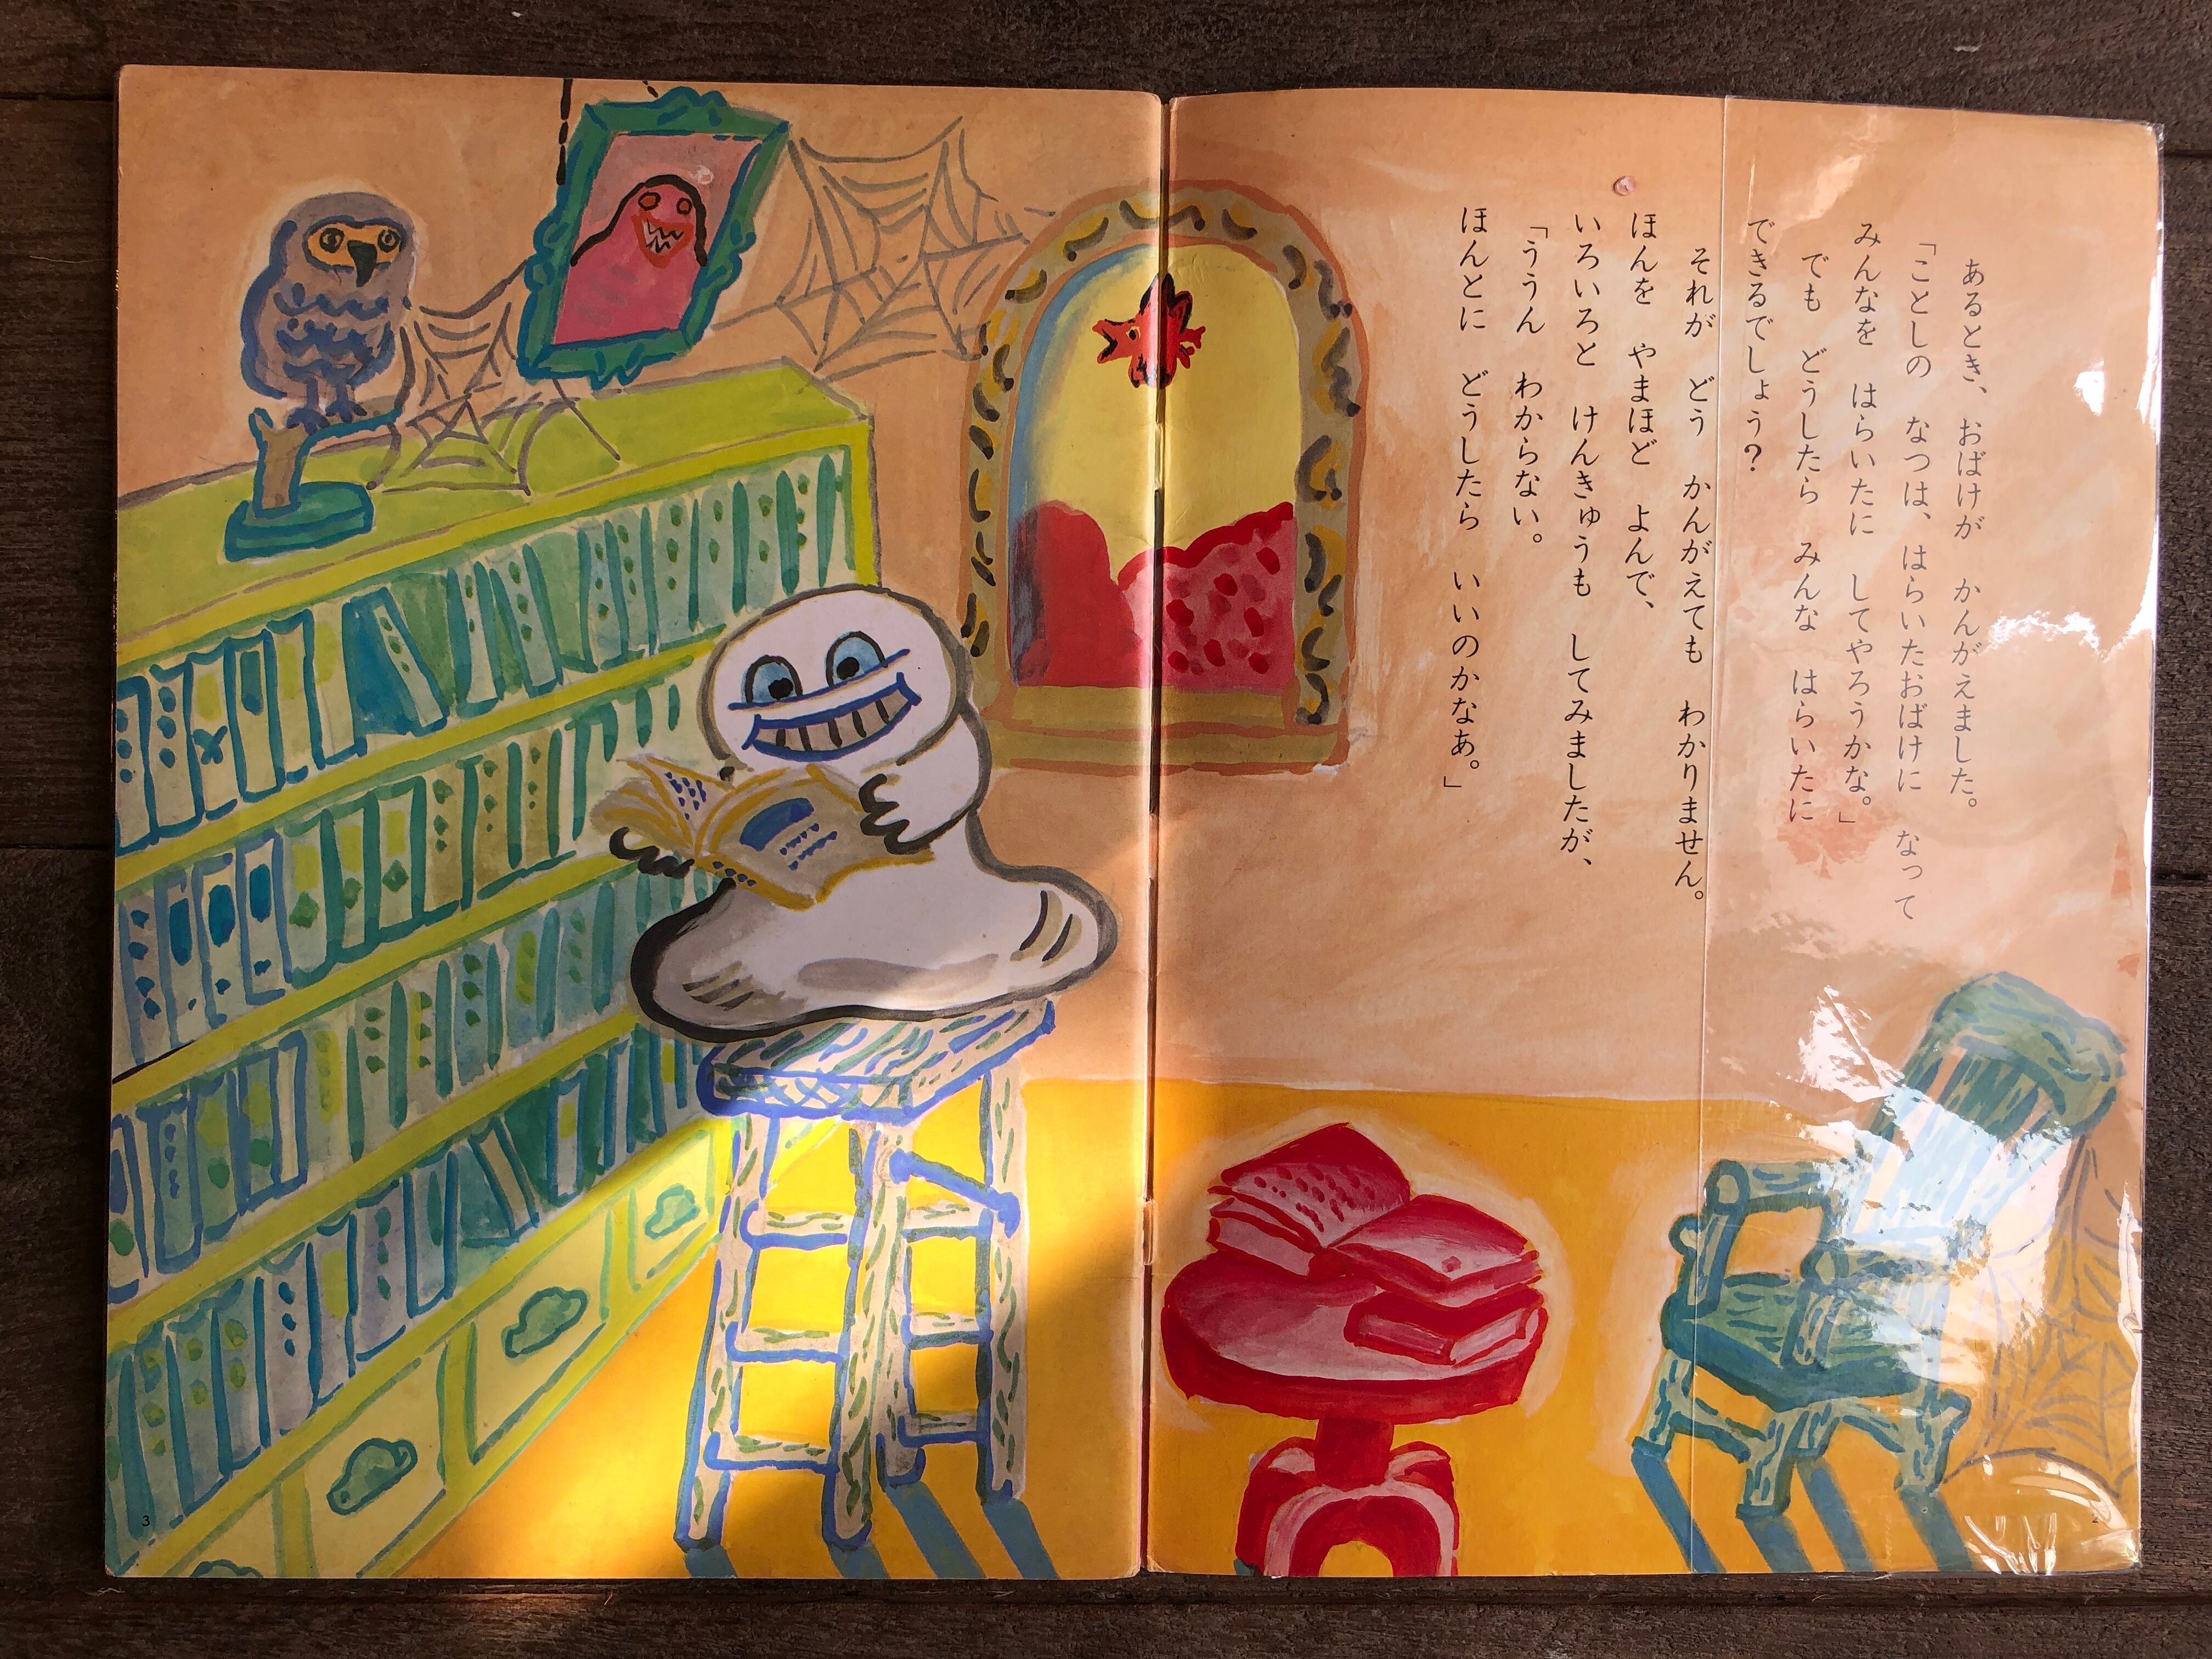 あるとき、おばけが　かんがえました。
「ことしの　なつは、はらいたおばけに　なって
みんなを　はらいたに　してやろうかな。」
でも　どうしたら　みんな　はらいたに
できるでしょう？
それが　どう　かんがえても　わかりません。
ほんを　やまほど　よんで、
いろいろと　けんきゅうも　してみましたが、
「ううん　わからない。
ほんとに　どうしたら　いいのかなあ。」
2
3